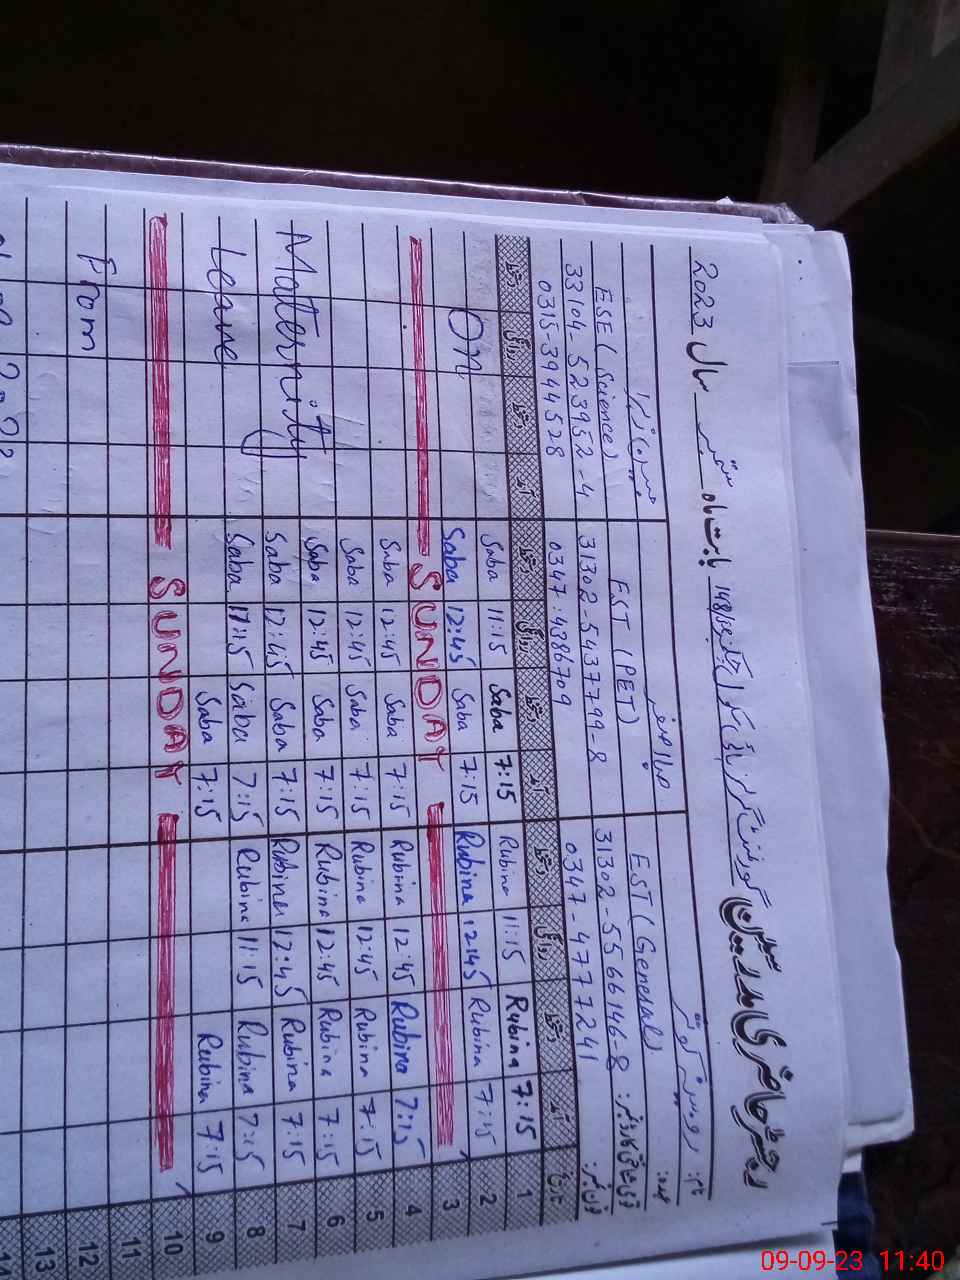 رجسٹر حاضری مدرسین گورنمنٹ گرلز ہائی سکول بابت ماہ ستمبر سال 2023
نام: روبینہ کوثر صبا اصغر
عہدہ: EST (General) EST (PET) ESE (Science)
قومی شناختی کارڈ نمبر: 31302-5566146-8 31302-5437799-8 33104-523952-4
فون نمبر: 0347-4777241 0347:4386709 0315-3944528
تاریخ آمد دستخط روانگی دستخط آمد دستخط روانگی دستخط آمد دستخط روانگی دستخط
1 7:15 Rubina 11:15 Rubina 7:15 Saba 11:15 Saba
2 7:15 Rubina 12:45 Rubina 7:15 Saba 12:45 Saba On
3 SUNDAY
4 7:15 Rubina 12:45 Rubina 7:15 Saba 12:45 Saba
5 7:15 Rubina 12:45 Rubina 7:15 Saba 12:45 Saba
6 7:15 Rubina 12:45 Rubina 7:15 Saba 12:45 Saba Maternity
7 7:15 Rubina 12:45 Rubina 7:15 Saba 12:45 Saba
8 7:15 Rubina 11:15 Rubina 7:15 Saba 11:15 Saba Leave
9 7:15 Rubina 7:15 Saba
10 SUNDAY
11
12 From
13
14
09-09-23 11:40